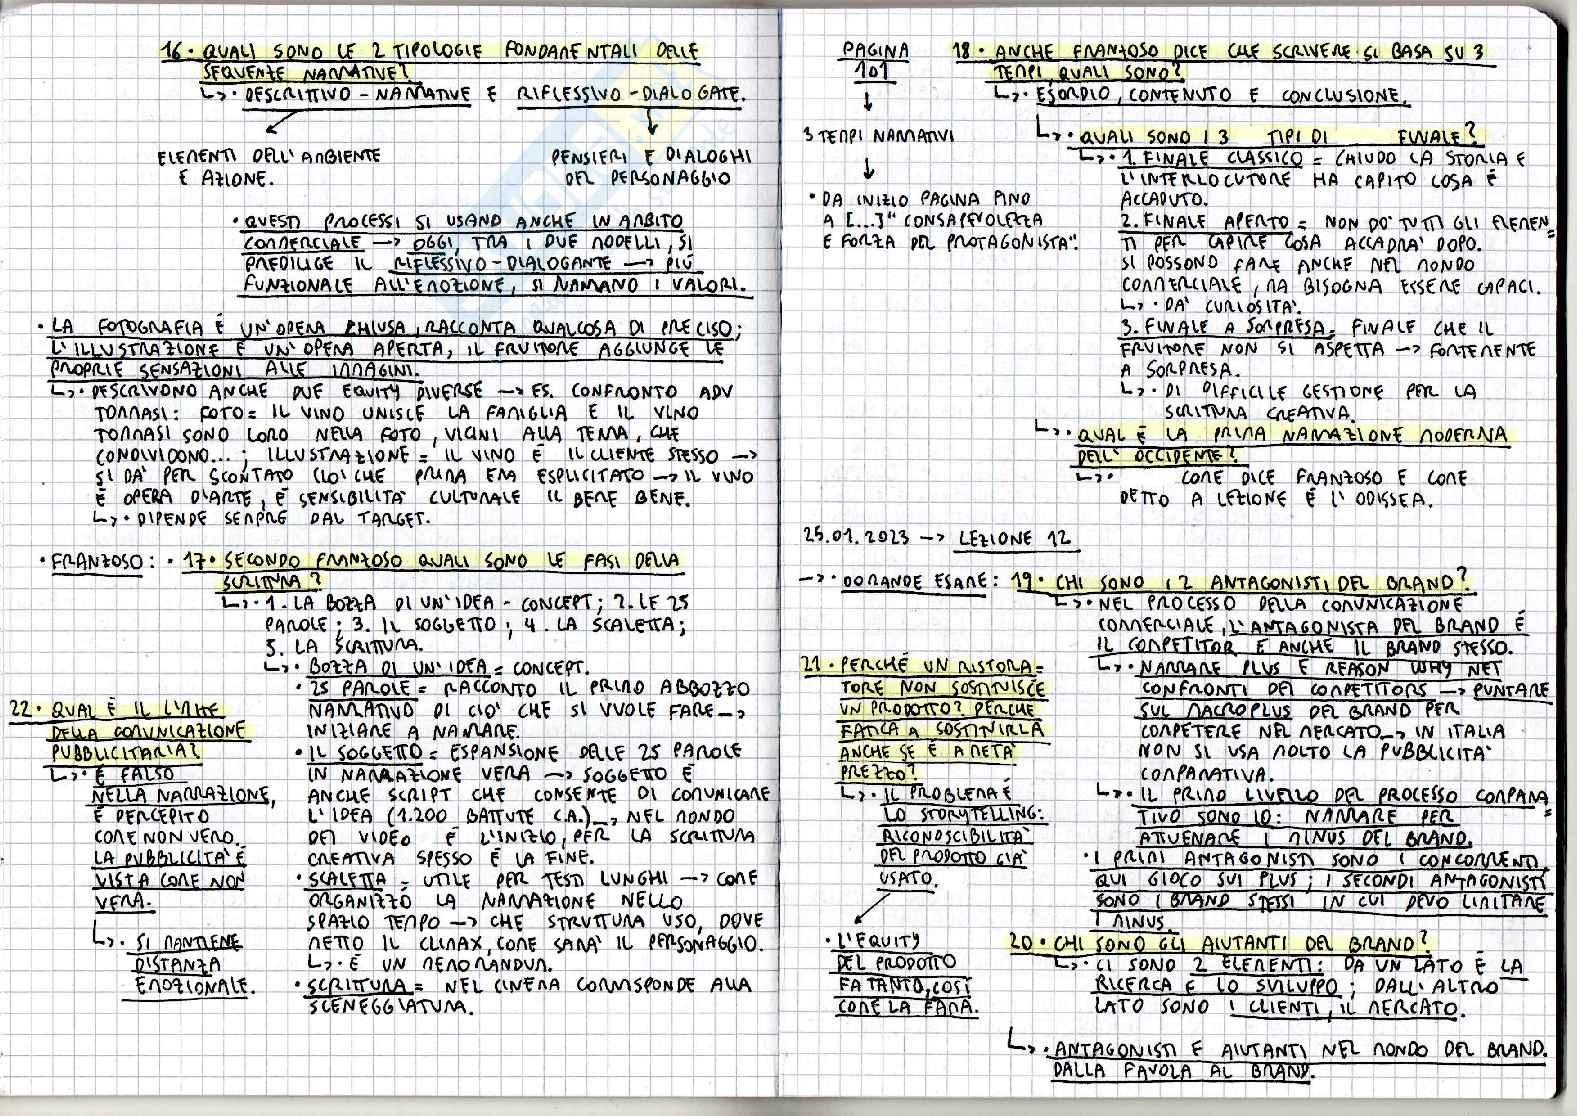 16. QUALI SONO LE 2 TIPOLOGIE FONDAMENTALI DELLE
SEQUENZE NARRATIVE?
↳ • DESCRITTIVO - NARRATIVE E RIFLESSIVO - DIALOGATE.
ELEMENTI DELL'AMBIENTE
E AZIONE.
PENSIERI E DIALOGHI
DEL PERSONAGGIO
• QUESTI PROCESSI SI USANO ANCHE IN AMBITO
COMMERCIALE --> OGGI, TRA I DUE MODELLI, SI
PREDILIGE IL RIFLESSIVO-DIALOGANTE --> PIÙ
FUNZIONALE ALL'EMOZIONE, SI NARRANO I VALORI.
• LA FOTOGRAFIA È UN'OPERA CHIUSA, RACCONTA QUALCOSA DI PRECISO;
L'ILLUSTRAZIONE È UN'OPERA APERTA, IL FRUITORE AGGIUNGE LE
PROPRIE SENSAZIONI ALLE IMMAGINI.
↳ • DESCRIVONO ANCHE DUE EQUITY DIVERSE --> ES. CONFRONTO ADV
TOMMASI: FOTO = IL VINO UNISCE LA FAMIGLIA E IL VINO
TOMMASI SONO LORO NELLA FOTO, VICINI ALLA TERRA, CHE
CONDIVIDONO...; ILLUSTRAZIONE = IL VINO È IL CLIENTE STESSO -->
SI DA' PER SCONTATO CIO' CHE PRIMA ERA ESPLICITATO --> IL VINO
È OPERA D'ARTE, È SENSIBILITA' CULTURALE IL BERE BENE.
↳ • DIPENDE SEMPRE DAL TARGET.
• FRANZOSO: • 17. SECONDO FRANZOSO QUALI SONO LE FASI DELLA
SCRITTURA?
↳ • 1. LA BOZZA DI UN'IDEA - CONCEPT; 2. LE 25
PAROLE; 3. IL SOGGETTO; 4. LA SCALETTA;
5. LA SCRITTURA.
↳ • BOZZA DI UN'IDEA = CONCEPT.
• 25 PAROLE = RACCONTO IL PRIMO ABBOZZO
NARRATIVO DI CIO' CHE SI VUOLE FARE -->
INIZIARE A NARRARE.
• IL SOGGETTO = ESPANSIONE DELLE 25 PAROLE
IN NARRAZIONE VERA --> SOGGETTO È
ANCHE SCRIPT CHE CONSENTE DI COMUNICARE
L'IDEA (1.200 BATTUTE CA.) --> NEL MONDO
DEI VIDEO È L'INIZIO, PER LA SCRITTURA
CREATIVA SPESSO È LA FINE.
• SCALETTA = UTILE PER TESTI LUNGHI --> COME
ORGANIZZO LA NARRAZIONE NELLO
SPAZIO TEMPO --> CHE STRUTTURA USO, DOVE
METTO IL CLIMAX, COME SARA' IL PERSONAGGIO.
↳ • È UN MEMORANDUM.
• SCRITTURA = NEL CINEMA CORRISPONDE ALLA
SCENEGGIATURA.
22. QUAL È IL LIMITE
DELLA COMUNICAZIONE
PUBBLICITARIA?
↳ • È FALSO
NELLA NARRAZIONE,
È PERCEPITO
COME NON VERO.
LA PUBBLICITA' È
VISTA COME NON
VERA.
↳ • SI MANTIENE
DISTANZA
EMOZIONALE.
PAGINA
101
3 TEMPI NARRATIVI
• DA INIZIO PAGINA FINO
A [...] "CONSAPEVOLEZZA
E FORZA DEL PROTAGONISTA".
18. ANCHE FRANZOSO DICE CHE SCRIVERE SI BASA SU 3
TEMPI, QUALI SONO?
↳ • ESORDIO, CONTENUTO E CONCLUSIONE.
↳ • QUALI SONO I 3 TIPI DI FINALE?
↳ • 1. FINALE CLASSICO = CHIUDO LA STORIA E
L'INTERLOCUTORE HA CAPITO COSA È
ACCADUTO.
2. FINALE APERTO = NON DO' TUTTI GLI ELEMEN=
TI PER CAPIRE COSA ACCADRA' DOPO.
SI POSSONO FARE ANCHE NEL MONDO
COMMERCIALE, MA BISOGNA ESSERE CAPACI.
↳ • DA' CURIOSITA'.
3. FINALE A SORPRESA = FINALE CHE IL
FRUITORE NON SI ASPETTA --> FORTEMENTE
A SORPRESA.
↳ • DI DIFFICILE GESTIONE PER LA
SCRITTURA CREATIVA.
↳ • QUAL È LA PRIMA NARRAZIONE MODERNA
DELL'OCCIDENTE?
↳ • COME DICE FRANZOSO E COME
DETTO A LEZIONE È L'ODISSEA.
25.01.2023 --> LEZIONE 12
--> • DOMANDE ESAME: 19. CHI SONO I 2 ANTAGONISTI DEL BRAND?
↳ • NEL PROCESSO DELLA COMUNICAZIONE
COMMERCIALE, L'ANTAGONISTA DEL BRAND È
IL COMPETITOR E ANCHE IL BRAND STESSO.
↳ • NARRARE PLUS E REASON WHY NEI
CONFRONTI DEI COMPETITORS --> PUNTARE
SUL MACROPLUS DEL BRAND PER
COMPETERE NEL MERCATO --> IN ITALIA
NON SI USA MOLTO LA PUBBLICITA'
COMPARATIVA.
↳ • IL PRIMO LIVELLO DEL PROCESSO COMPARA=
TIVO SONO IO: NARRARE PER
ATTENUARE I MINUS DEL BRAND.
• I PRIMI ANTAGONISTI SONO I CONCORRENTI
QUI GIOCO SUI PLUS; I SECONDI ANTAGONISTI
SONO I BRAND STESSI IN CUI DEVO LIMITARE
I MINUS.
21. PERCHÉ UN RISTORA=
TORE NON SOSTITUISCE
UN PRODOTTO? PERCHÉ
FATICA A SOSTITUIRLA
ANCHE SE È A METÀ
PREZZO?
↳ • IL PROBLEMA È
LO STORYTELLING:
RICONOSCIBILITA'
DEL PRODOTTO GIA'
USATO.
• L'EQUITY
DEL PRODOTTO
FA TANTO, COSÌ
COME LA FAMA.
20. CHI SONO GLI AIUTANTI DEL BRAND?
↳ • CI SONO 2 ELEMENTI: DA UN LATO È LA
RICERCA E LO SVILUPPO; DALL'ALTRO
LATO SONO I CLIENTI, IL MERCATO.
↳ • ANTAGONISTI E AIUTANTI NEL MONDO DEL BRAND.
DALLA FAVOLA AL BRAND.